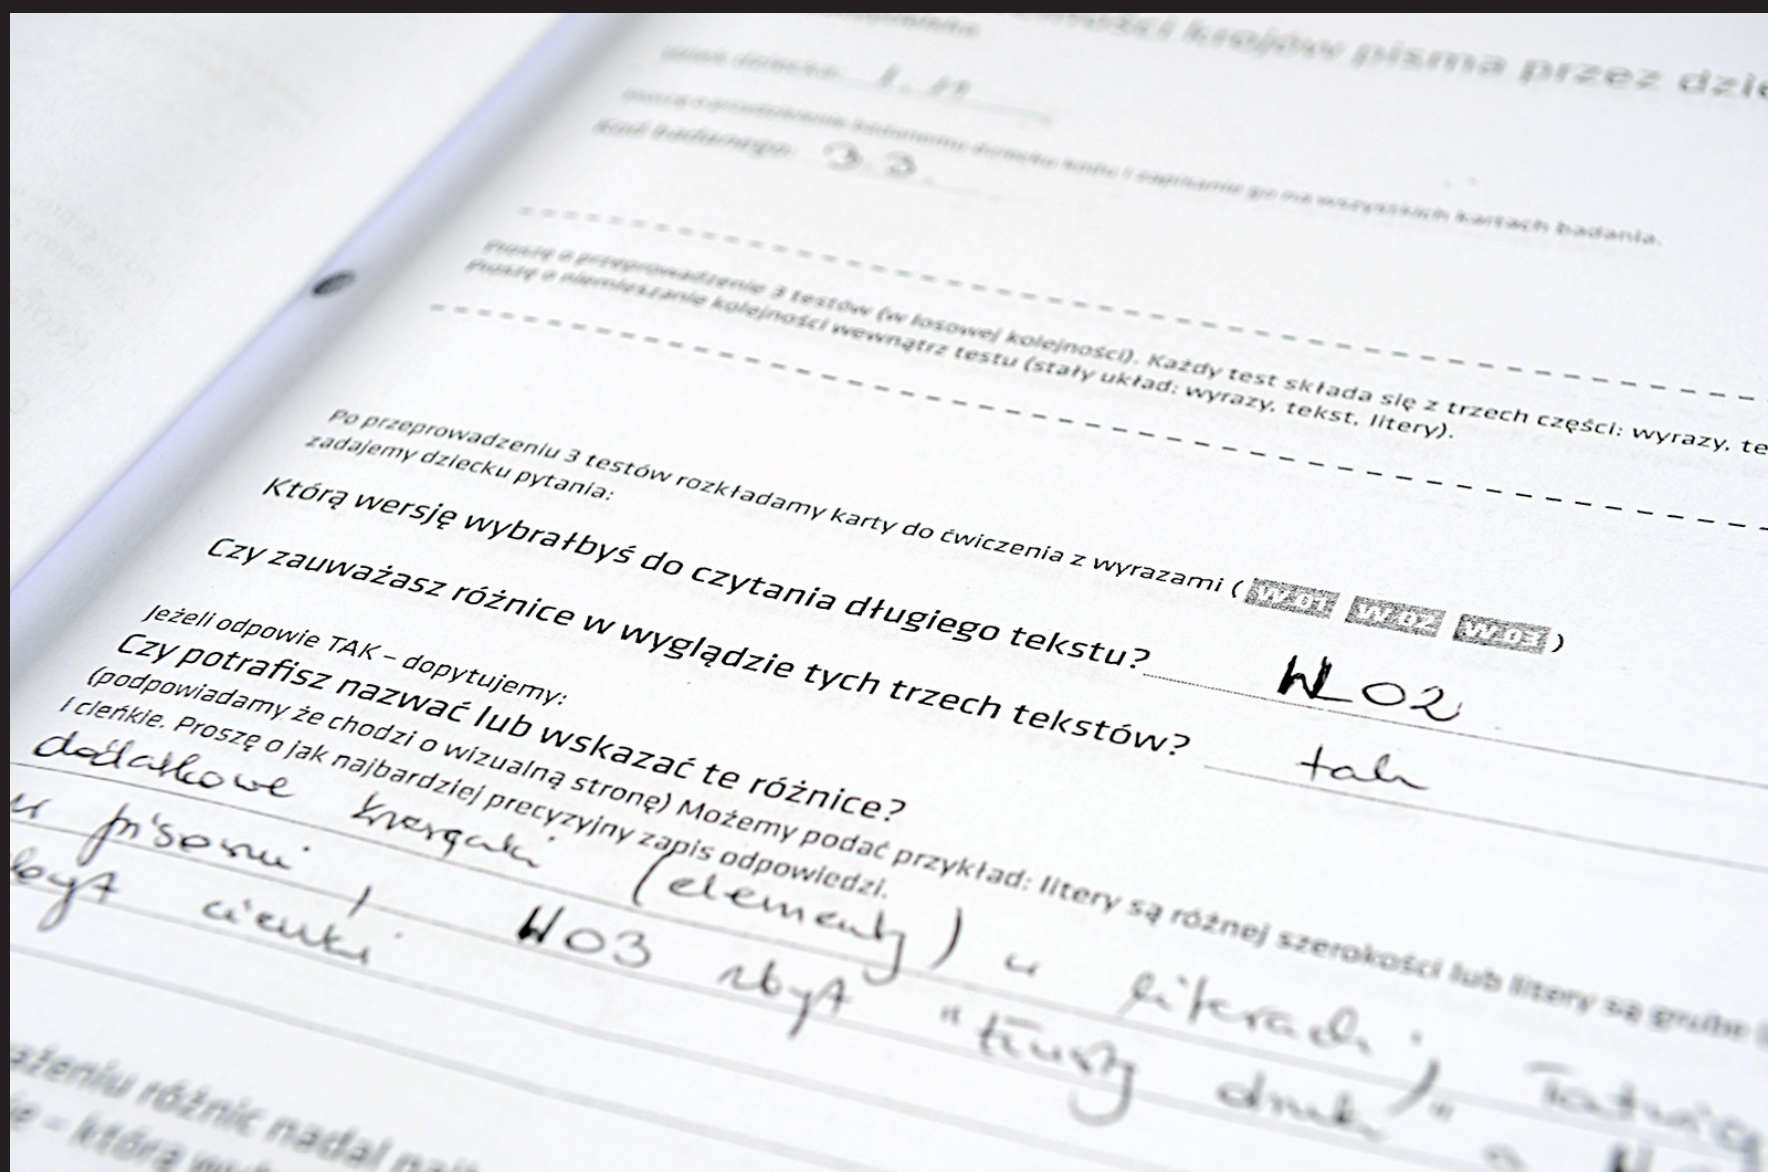 krojów pisma przez
Kod badanego: 3.3.
Proszę o przeprowadzenie 3 testów (w losowej kolejności). Każdy test składa się z trzech części: wyrazy,
Proszę o niemieszanie kolejności wewnątrz testu (stały układ: wyrazy, tekst, litery).
Po przeprowadzeniu 3 testów rozkładamy karty do ćwiczenia z wyrazami ( W.01 W.02 W.03 )
zadajemy dziecku pytania:
Którą wersję wybrałbyś do czytania długiego tekstu? W 02
Czy zauważasz różnice w wyglądzie tych trzech tekstów? tak
Jeżeli odpowie TAK – dopytujemy:
Czy potrafisz nazwać lub wskazać te różnice?
(podpowiadamy że chodzi o wizualną stronę) Możemy podać przykład: litery są różnej szerokości lub litery są grube
i cieńkie. Proszę o jak najbardziej precyzyjny zapis odpowiedzi.
dodatkowe (elementy) w literach,
W03 zbyt "tłusty druk"
zbyt cienki
różnic nadal
– którą